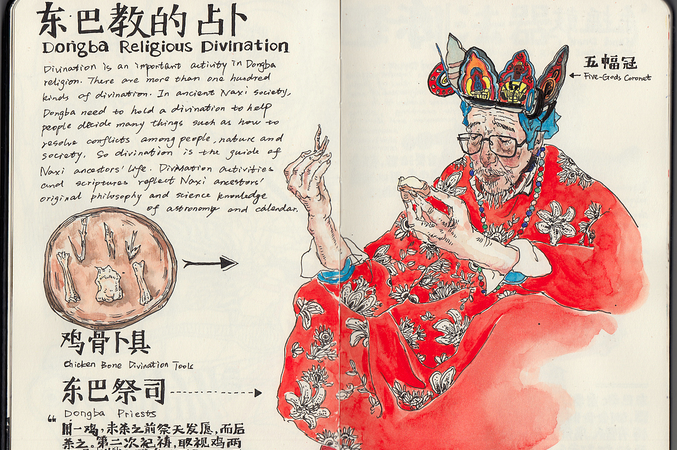 东巴教的占卜
Dongba Religious Divination
Divination is an important activity in Dongba
religion. There are more than one hundred
kinds of divination. In ancient Naxi society,
Dongba need to hold a divination to help
people decide many things such as how to
resolve conflicts among people, nature and
society. So divination is the guide of
Naxi ancestors' life. Divination activities
and scriptures reflect Naxi ancestors'
original philosophy and science knowledge
of astronomy and calendar.
五幅冠
Five-Gods Coronet
鸡骨卜具
Chicken Bone Divination Tools
东巴祭司
Dongba Priests
“用一鸡,未杀之前祭天发愿,而后
杀之。第二次祀祷,取视鸡两